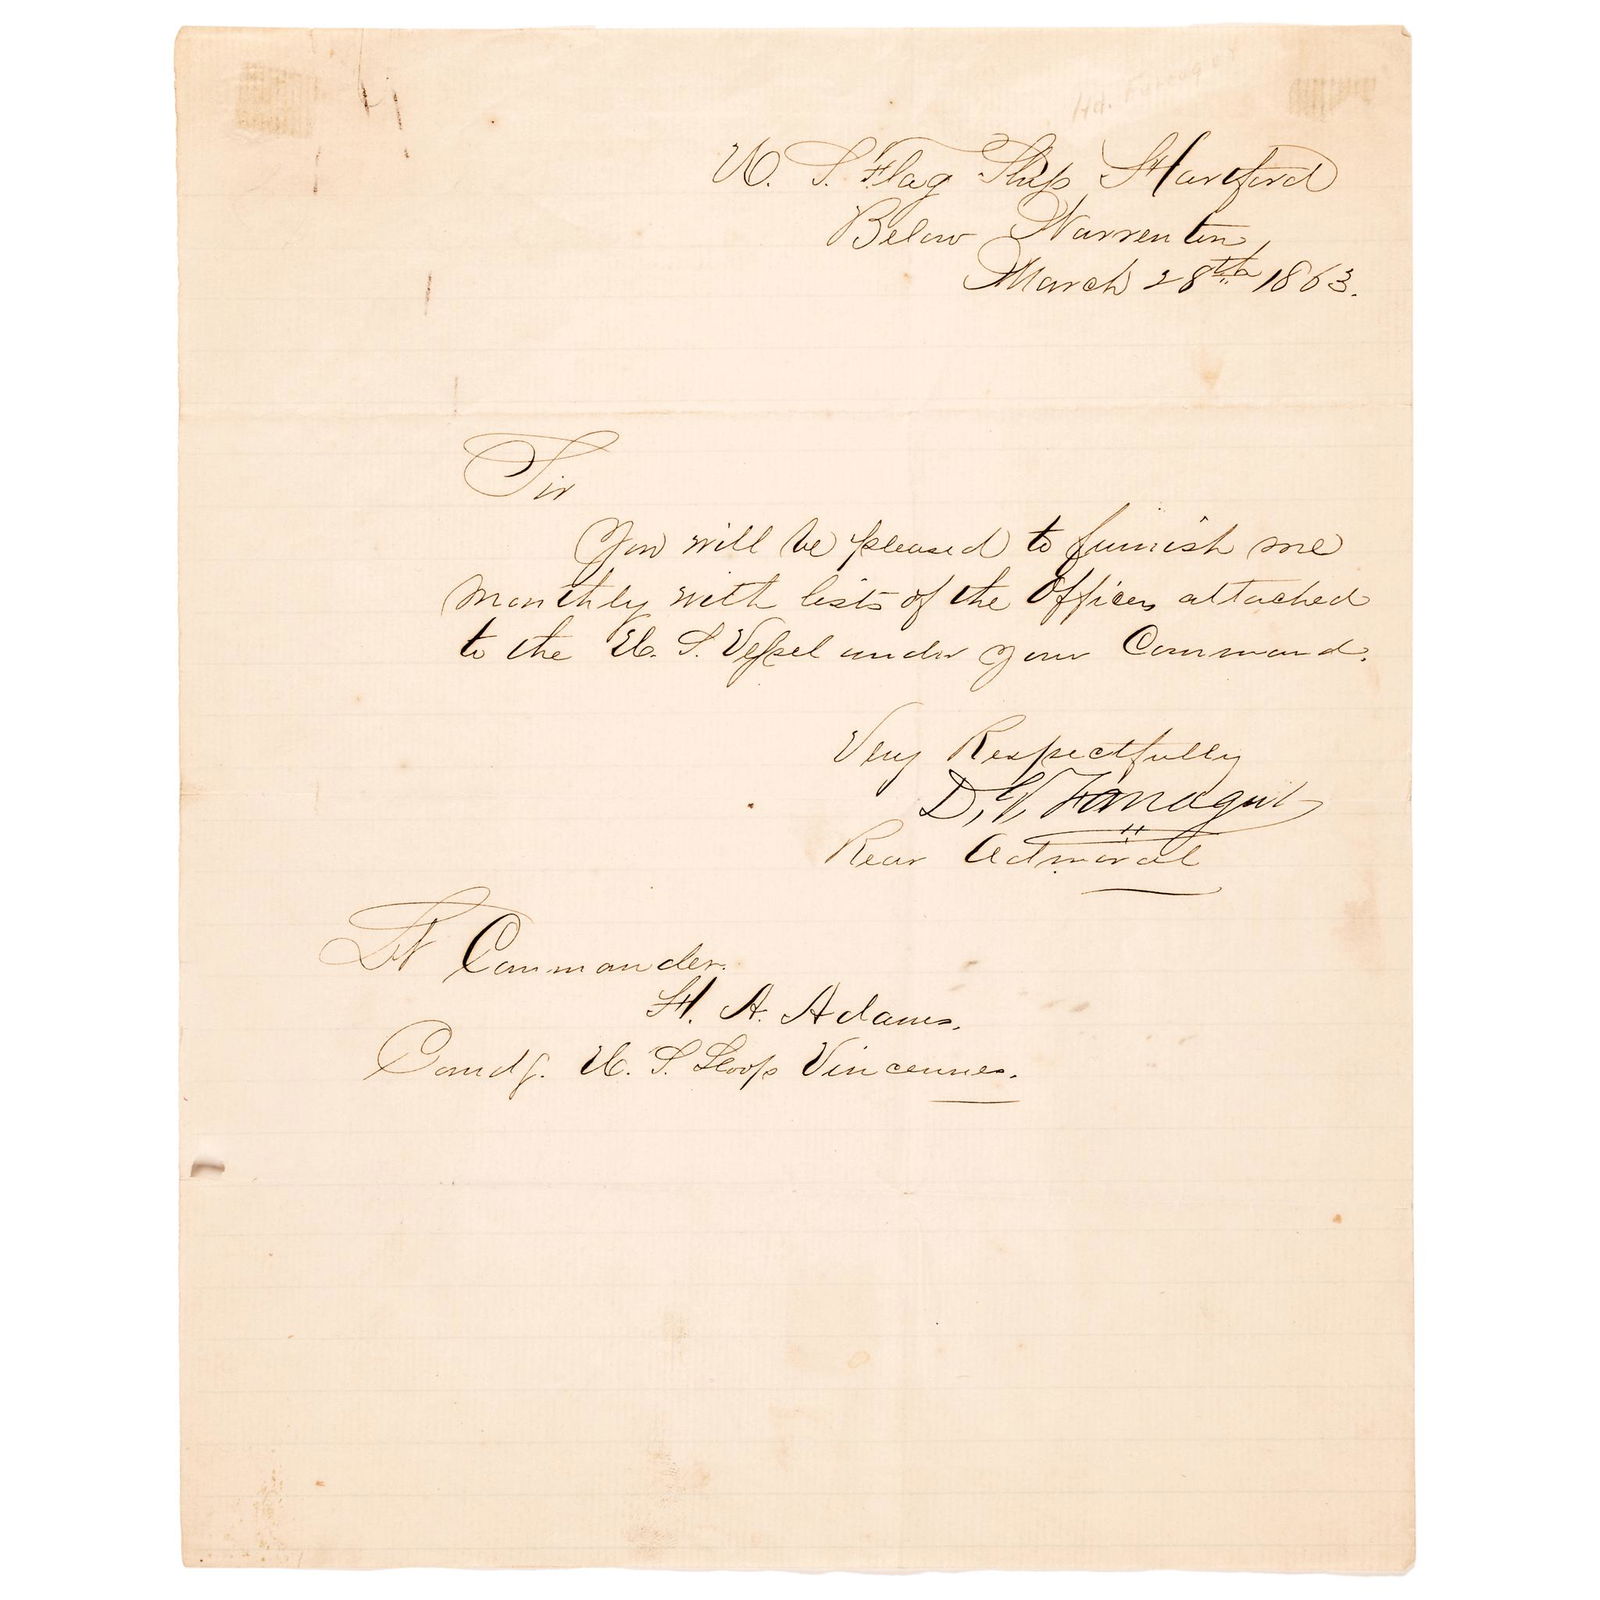 Hd. Farragut
U. S. Flag Ship Hartford
Below Warrenton,
March 28th 1863.
Sir
You will be pleased to furnish me
monthly with lists of the Officers attached
to the U. S. Vessel under your Command.
Very Respectfully
D. G. Farragut
Rear Admiral
Lt Commander.
H. A. Adams.
Comdg. U. S. Sloop Vincennes.